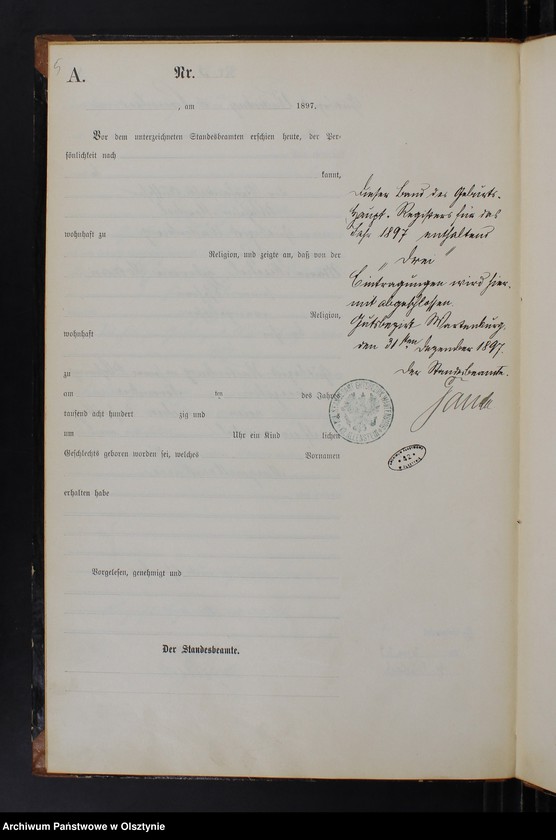 5
A.
Nr.
, am 1897.
Vor dem unterzeichneten Standesbeamten erschien heute, der Per-
sönlichkeit nach
kannt,
wohnhaft zu
Religion, und zeigte an, daß von der
Religion,
wohnhaft
zu
am ten des Jahres
tausend acht hundert zig und
um Uhr ein Kind lichen
Geschlechts geboren worden sei, welches Vornamen
erhalten habe
Vorgelesen, genehmigt und
Der Standesbeamte.
Dieser Band des Geburts-
Haupt-Registers für das
Jahr 1897 enthaltend
"Drei"
Eintragungen wird hier-
mit abgeschlossen.
Gutsbezirk Wartenburg,
den 31ten Dezember 1897.
Der Standesbeamte.
42
Archiwum Państwowe w Olsztynie